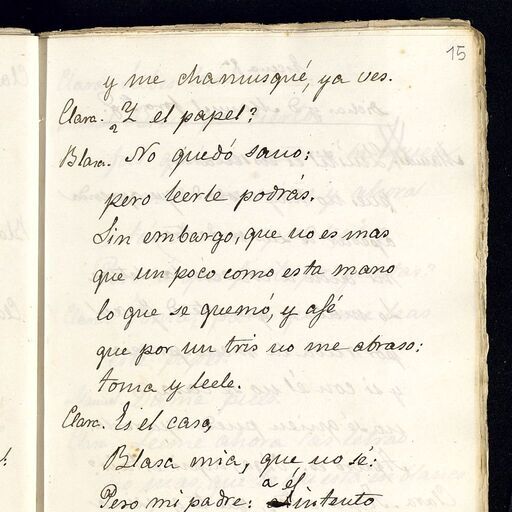 15
y me chamusqué, ya ves.
Clara. ¿Y el papel?
Blasa. No quedó sano:
pero leerle podrás.
Sin embargo, que no es mas
que un poco como esta mano
lo que se quemó, y a fé
que por un tris no me abraso:
toma y leele.
Clara. Es el caso,
Blasa mia, que no sé:
Pero mi padre: a él intento